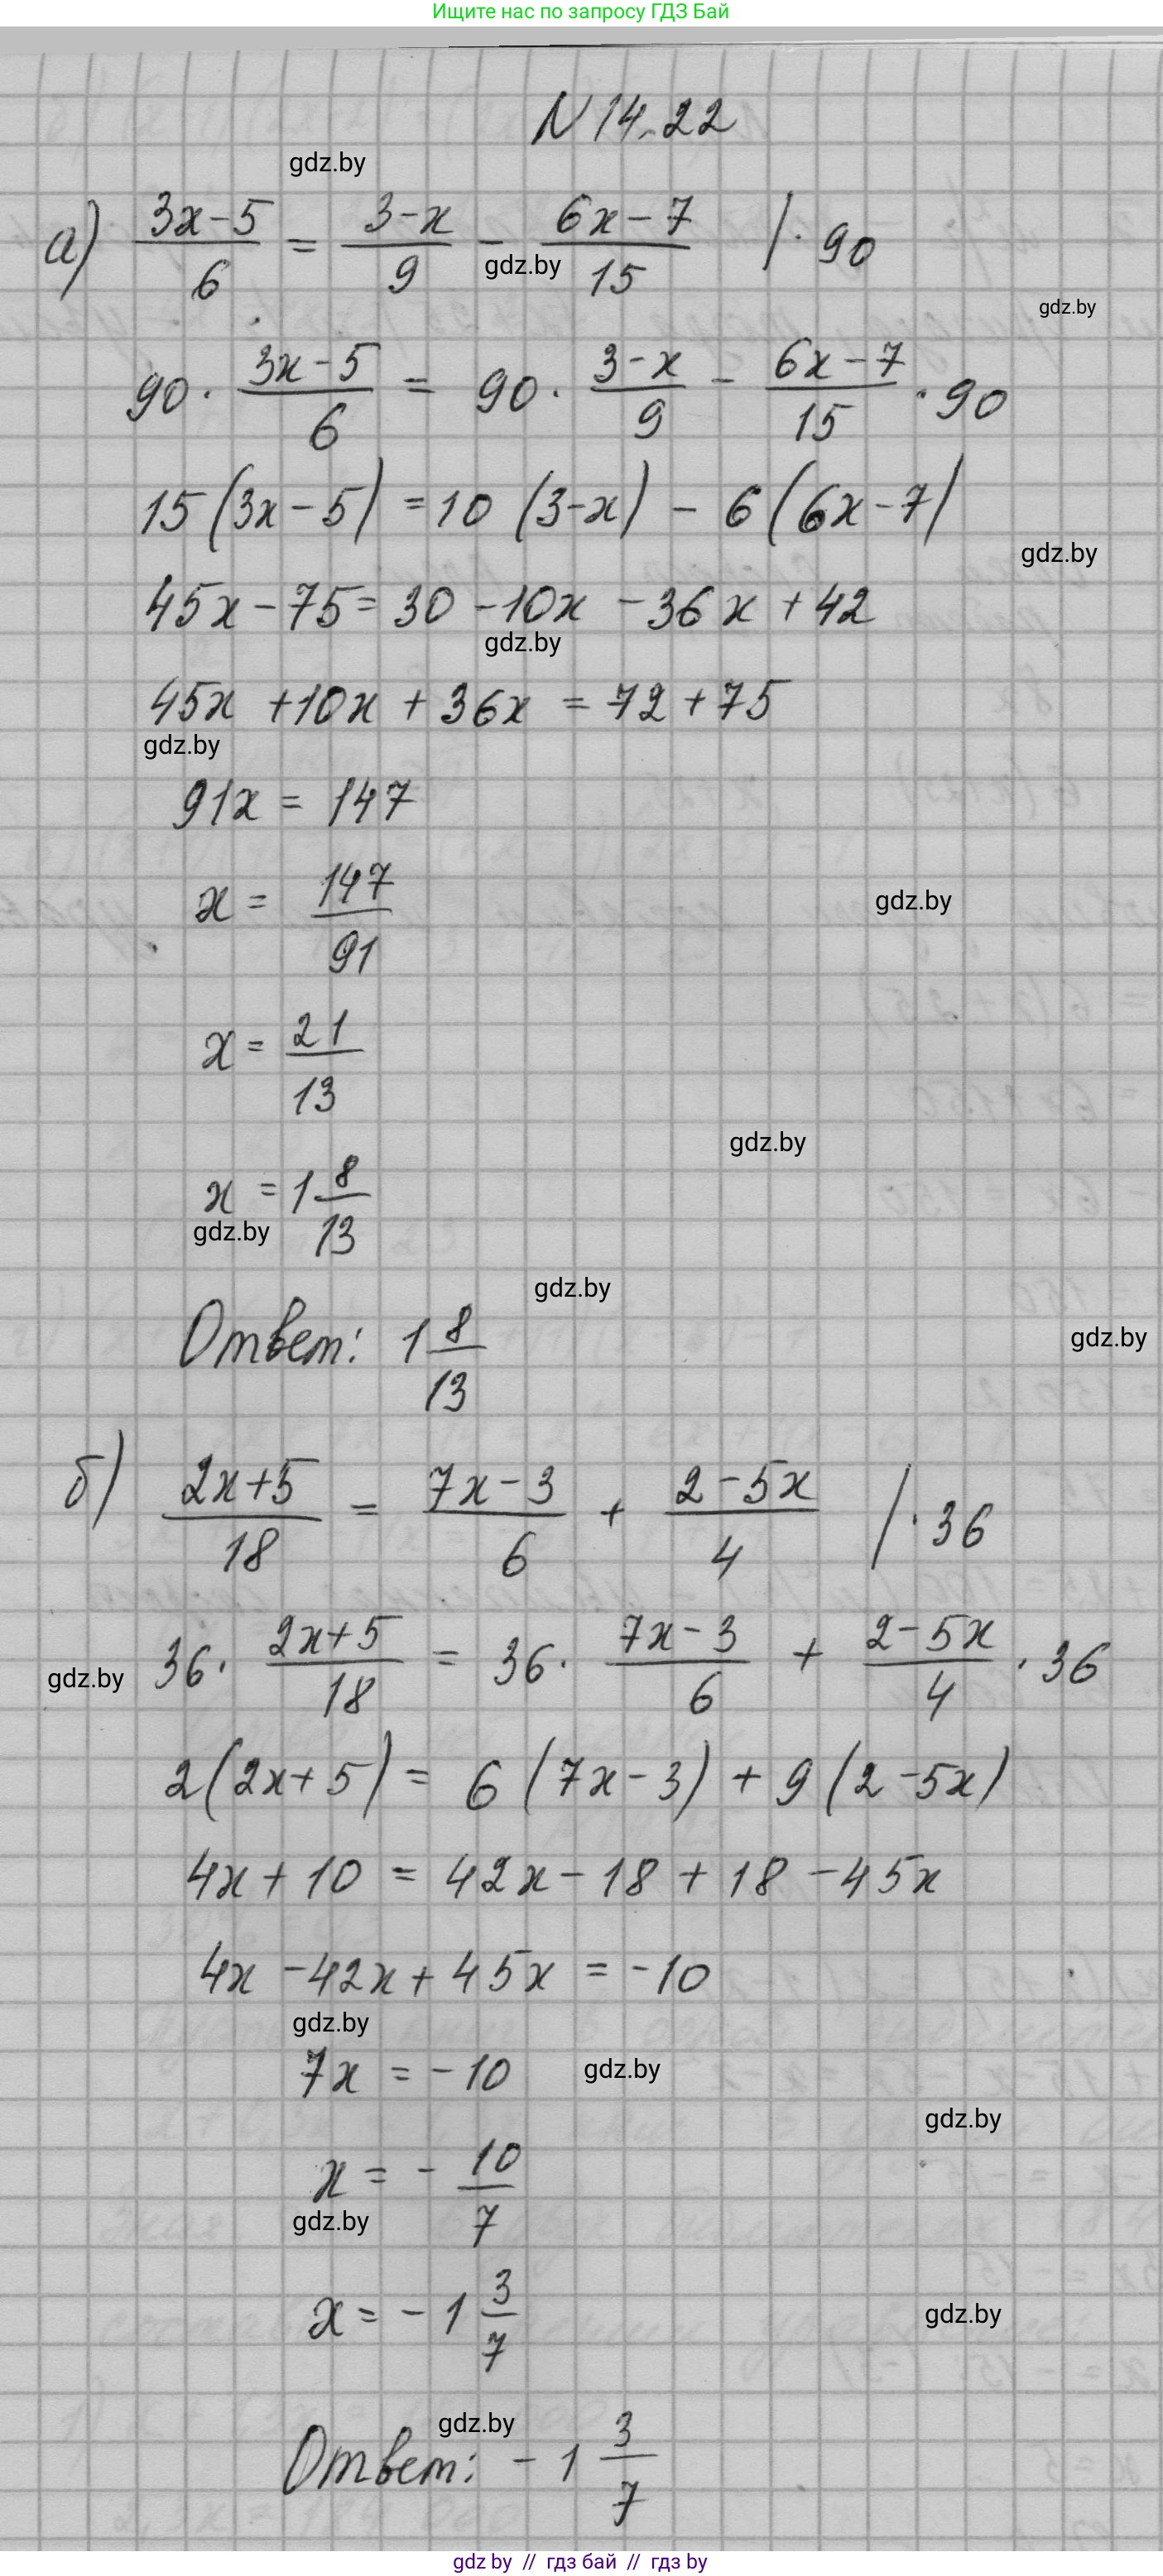 Ищите нас по запросу ГДЗ Бай
N 14.22
gdz.by
а) (3x-5)/6 = (3-x)/9 - (6x-7)/15 | · 90
gdz.by
gdz.by
90 · (3x-5)/6 = 90 · (3-x)/9 - (6x-7)/15 · 90
15(3x-5) = 10 (3-x) - 6(6x-7)
gdz.by
45x - 75 = 30 - 10x - 36x + 42
gdz.by
45x + 10x + 36x = 72 + 75
gdz.by
91x = 147
x = 147/91
gdz.by
x = 21/13
gdz.by
x = 1 8/13
gdz.by
gdz.by
Ответ: 1 8/13
gdz.by
б) (2x+5)/18 = (7x-3)/6 + (2-5x)/4 | · 36
36 · (2x+5)/18 = 36 · (7x-3)/6 + (2-5x)/4 · 36
gdz.by
2(2x+5) = 6(7x-3) + 9(2-5x)
4x + 10 = 42x - 18 + 18 - 45x
4x - 42x + 45x = -10
gdz.by
7x = -10
gdz.by
gdz.by
x = - 10/7
gdz.by
x = - 1 3/7
gdz.by
gdz.by
Ответ: - 1 3/7
gdz by // гдз бай // гдз by